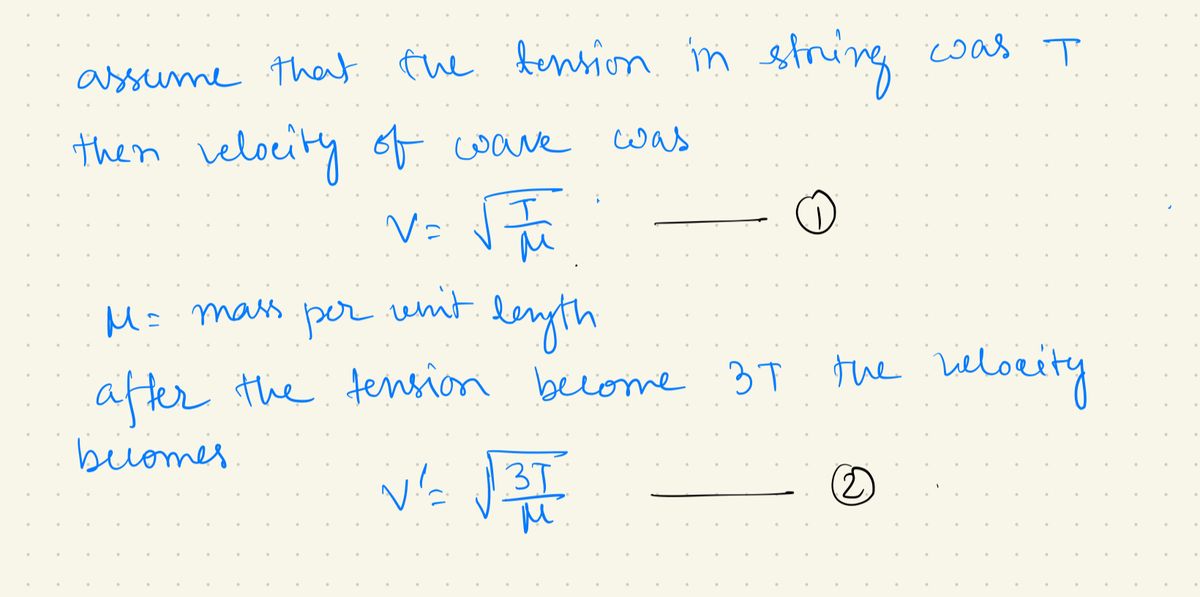 assume that the tension in string was T
then velocity of wave was
V = √(T/μ) ——— ①
μ = mass per unit length
after the tension become 3T the velocity
becomes
V' = √(3T/μ) ——— ②